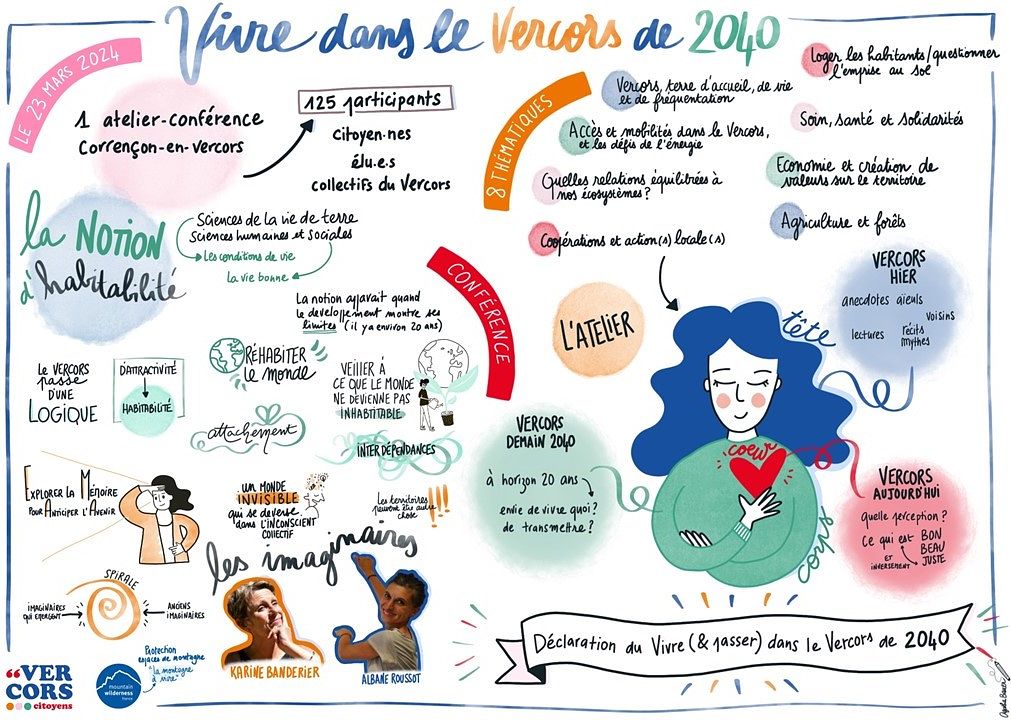 Vivre dans le Vercors de 2040
LE 23 MARS 2024
1 atelier-conférence
Corrençon-en-vercors
125 participants
citoyen·nes
élu.e.s
collectifs du Vercors
8 THÉMATIQUES
Vercors, terre d'accueil, de vie
et de fréquentation
Accès et mobilités dans le Vercors,
et les défis de l'énergie
Quelles relations équilibrées à
nos écosystèmes?
Coopérations et action(s) locale(s)
Loger les habitants/questionner
l'emprise au sol
Soin, santé et solidarités
Economie et création de
valeurs sur le territoire
Agriculture et forêts
la NOTION
d'habitabilité
Sciences de la vie de terre
Sciences humaines et sociales
Les conditions de vie
la vie bonne
La notion apparait quand
le developpement montre ses
limites (il y a environ 20 ans)
CONFÉRENCE
Le VERCORS
passe
D'UNE
LOGIQUE
D'ATTRACTIVITÉ
HABITABILITÉ
RÉHABITER
le monde
attachement
VEILLER À
CE QUE LE MONDE
NE DEVIENNE PAS
INHABITABLE
INTERDÉPENDANCES
EXPLORER LA MÉMOIRE
POUR ANTICIPER L'AVENIR
UN MONDE
INVISIBLE
qui se deverse
dans L'INCONSCIENT
COLLECTIF
Les territoires
peuvent être autre
chose
!!!
les imaginaires
SPIRALE
IMAGINAIRES
QUI EMERGENT
ANCIENS
IMAGINAIRES
KARINE BANDERIER
ALBANE ROUSSOT
L'ATELIER
tête
VERCORS
HIER
anecdotes aïeuls
voisins
lectures
récits
mythes
VERCORS
DEMAIN 2040
à horizon 20 ans
envie de vivre quoi?
de transmettre?
coeur
corps
VERCORS
AUJOURD'HUI
quelle perception?
Ce qui est BON
BEAU
JUSTE
ET
INVERSEMENT
Déclaration du Vivre (& passer) dans le Vercors de 2040
“VER
CORS
citoyens
mountain
wilderness
france
Protection
espaces de montagne
"la montagne
à vivre"